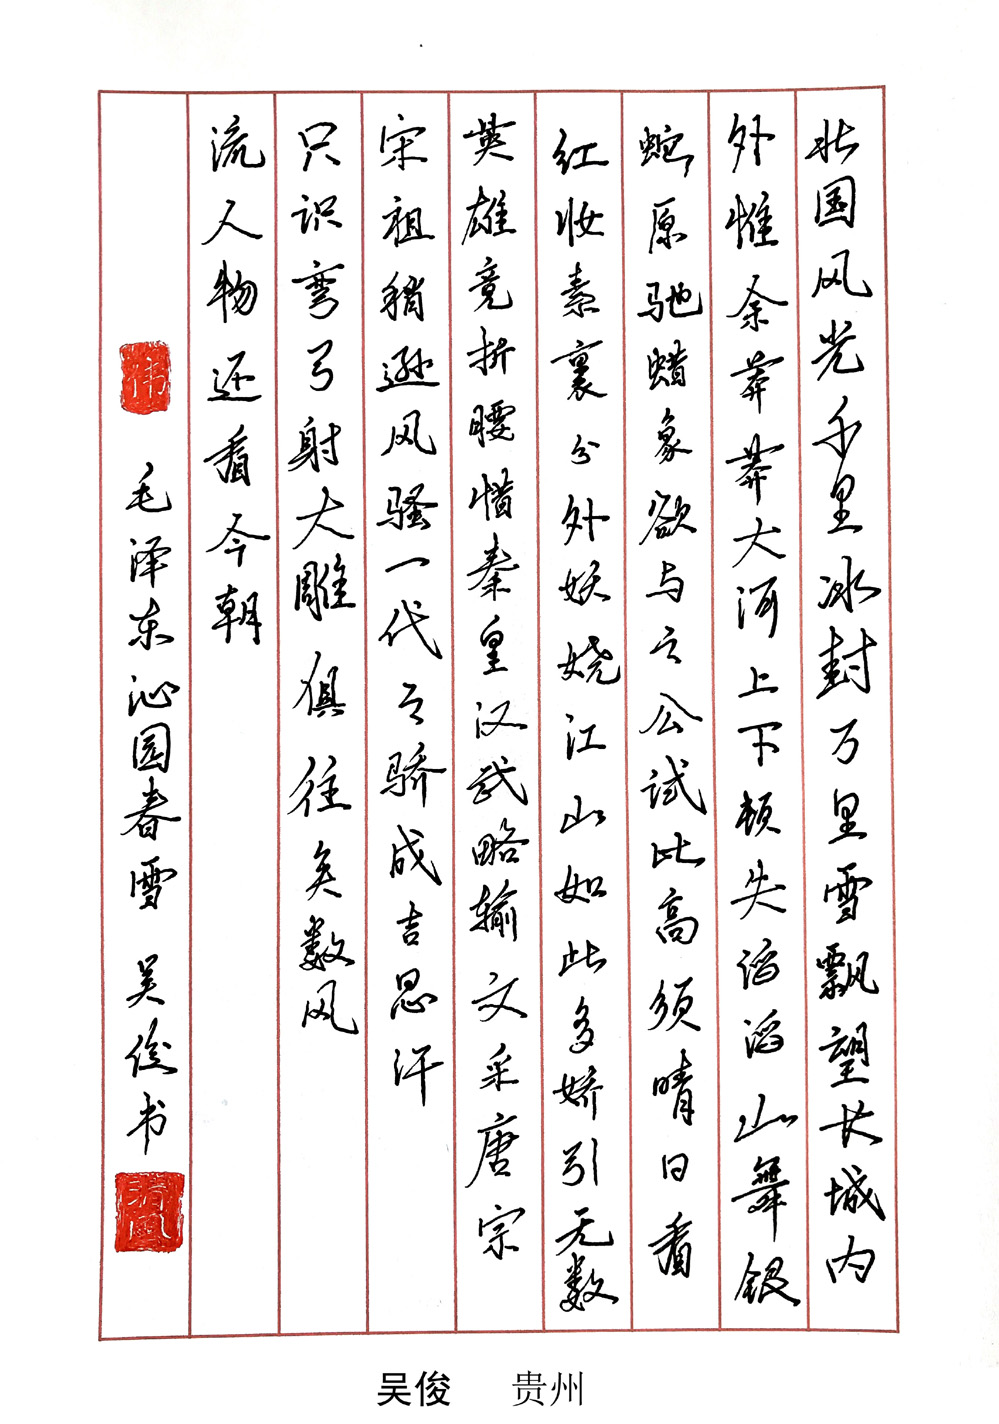 北国风光千里冰封万里雪飘望长城内
外惟余莽莽大河上下顿失滔滔山舞银
蛇原驰蜡象欲与云公试比高须晴日看
红妆素裹分外妖娆江山如此多娇引无数
英雄竞折腰惜秦皇汉武略输文采唐宗
宋祖稍逊风骚一代之骄成吉思汗
只识弯弓射大雕俱往矣数风
流人物还看今朝
毛泽东沁园春雪 吴俊书
吴俊 贵州